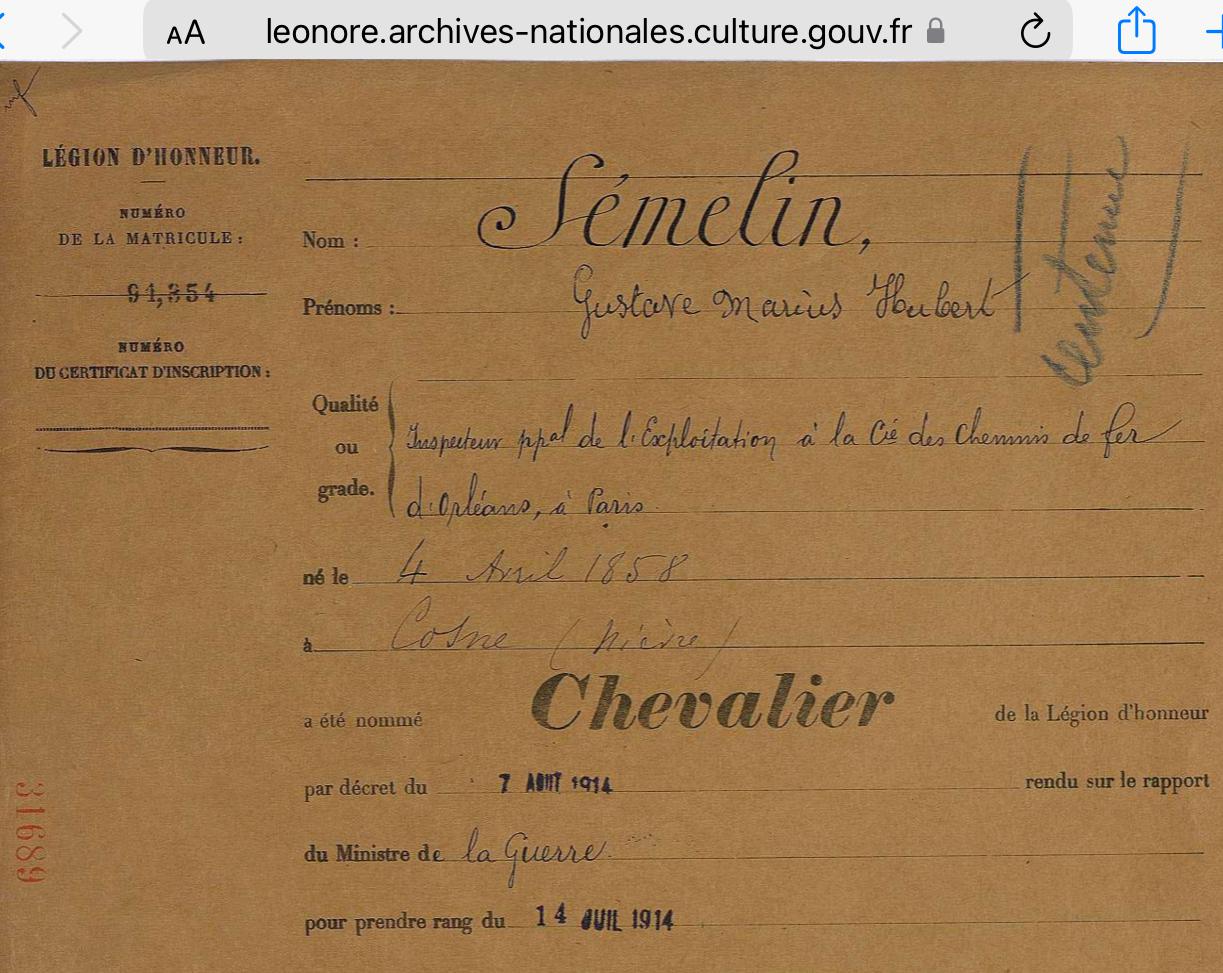 AA leonore.archives-nationales.culture.gouv.fr
LÉGION D'HONNEUR.
NUMÉRO
DE LA MATRICULE :
91,354
NUMÉRO
DU CERTIFICAT D'INSCRIPTION :
Nom : Sémelin,
Prénoms : Gustave Marius Hubert
centenaire
Qualité
ou
grade.
Inspecteur ppal de l'Exploitation à la Cie des Chemins de fer
d'Orléans, à Paris
né le 4 Avril 1858
à Cosne (Nièvre)
a été nommé Chevalier de la Légion d'honneur
par décret du 7 AOUT 1914 rendu sur le rapport
du Ministre de la Guerre
pour prendre rang du 14 JUIL 1914
31689